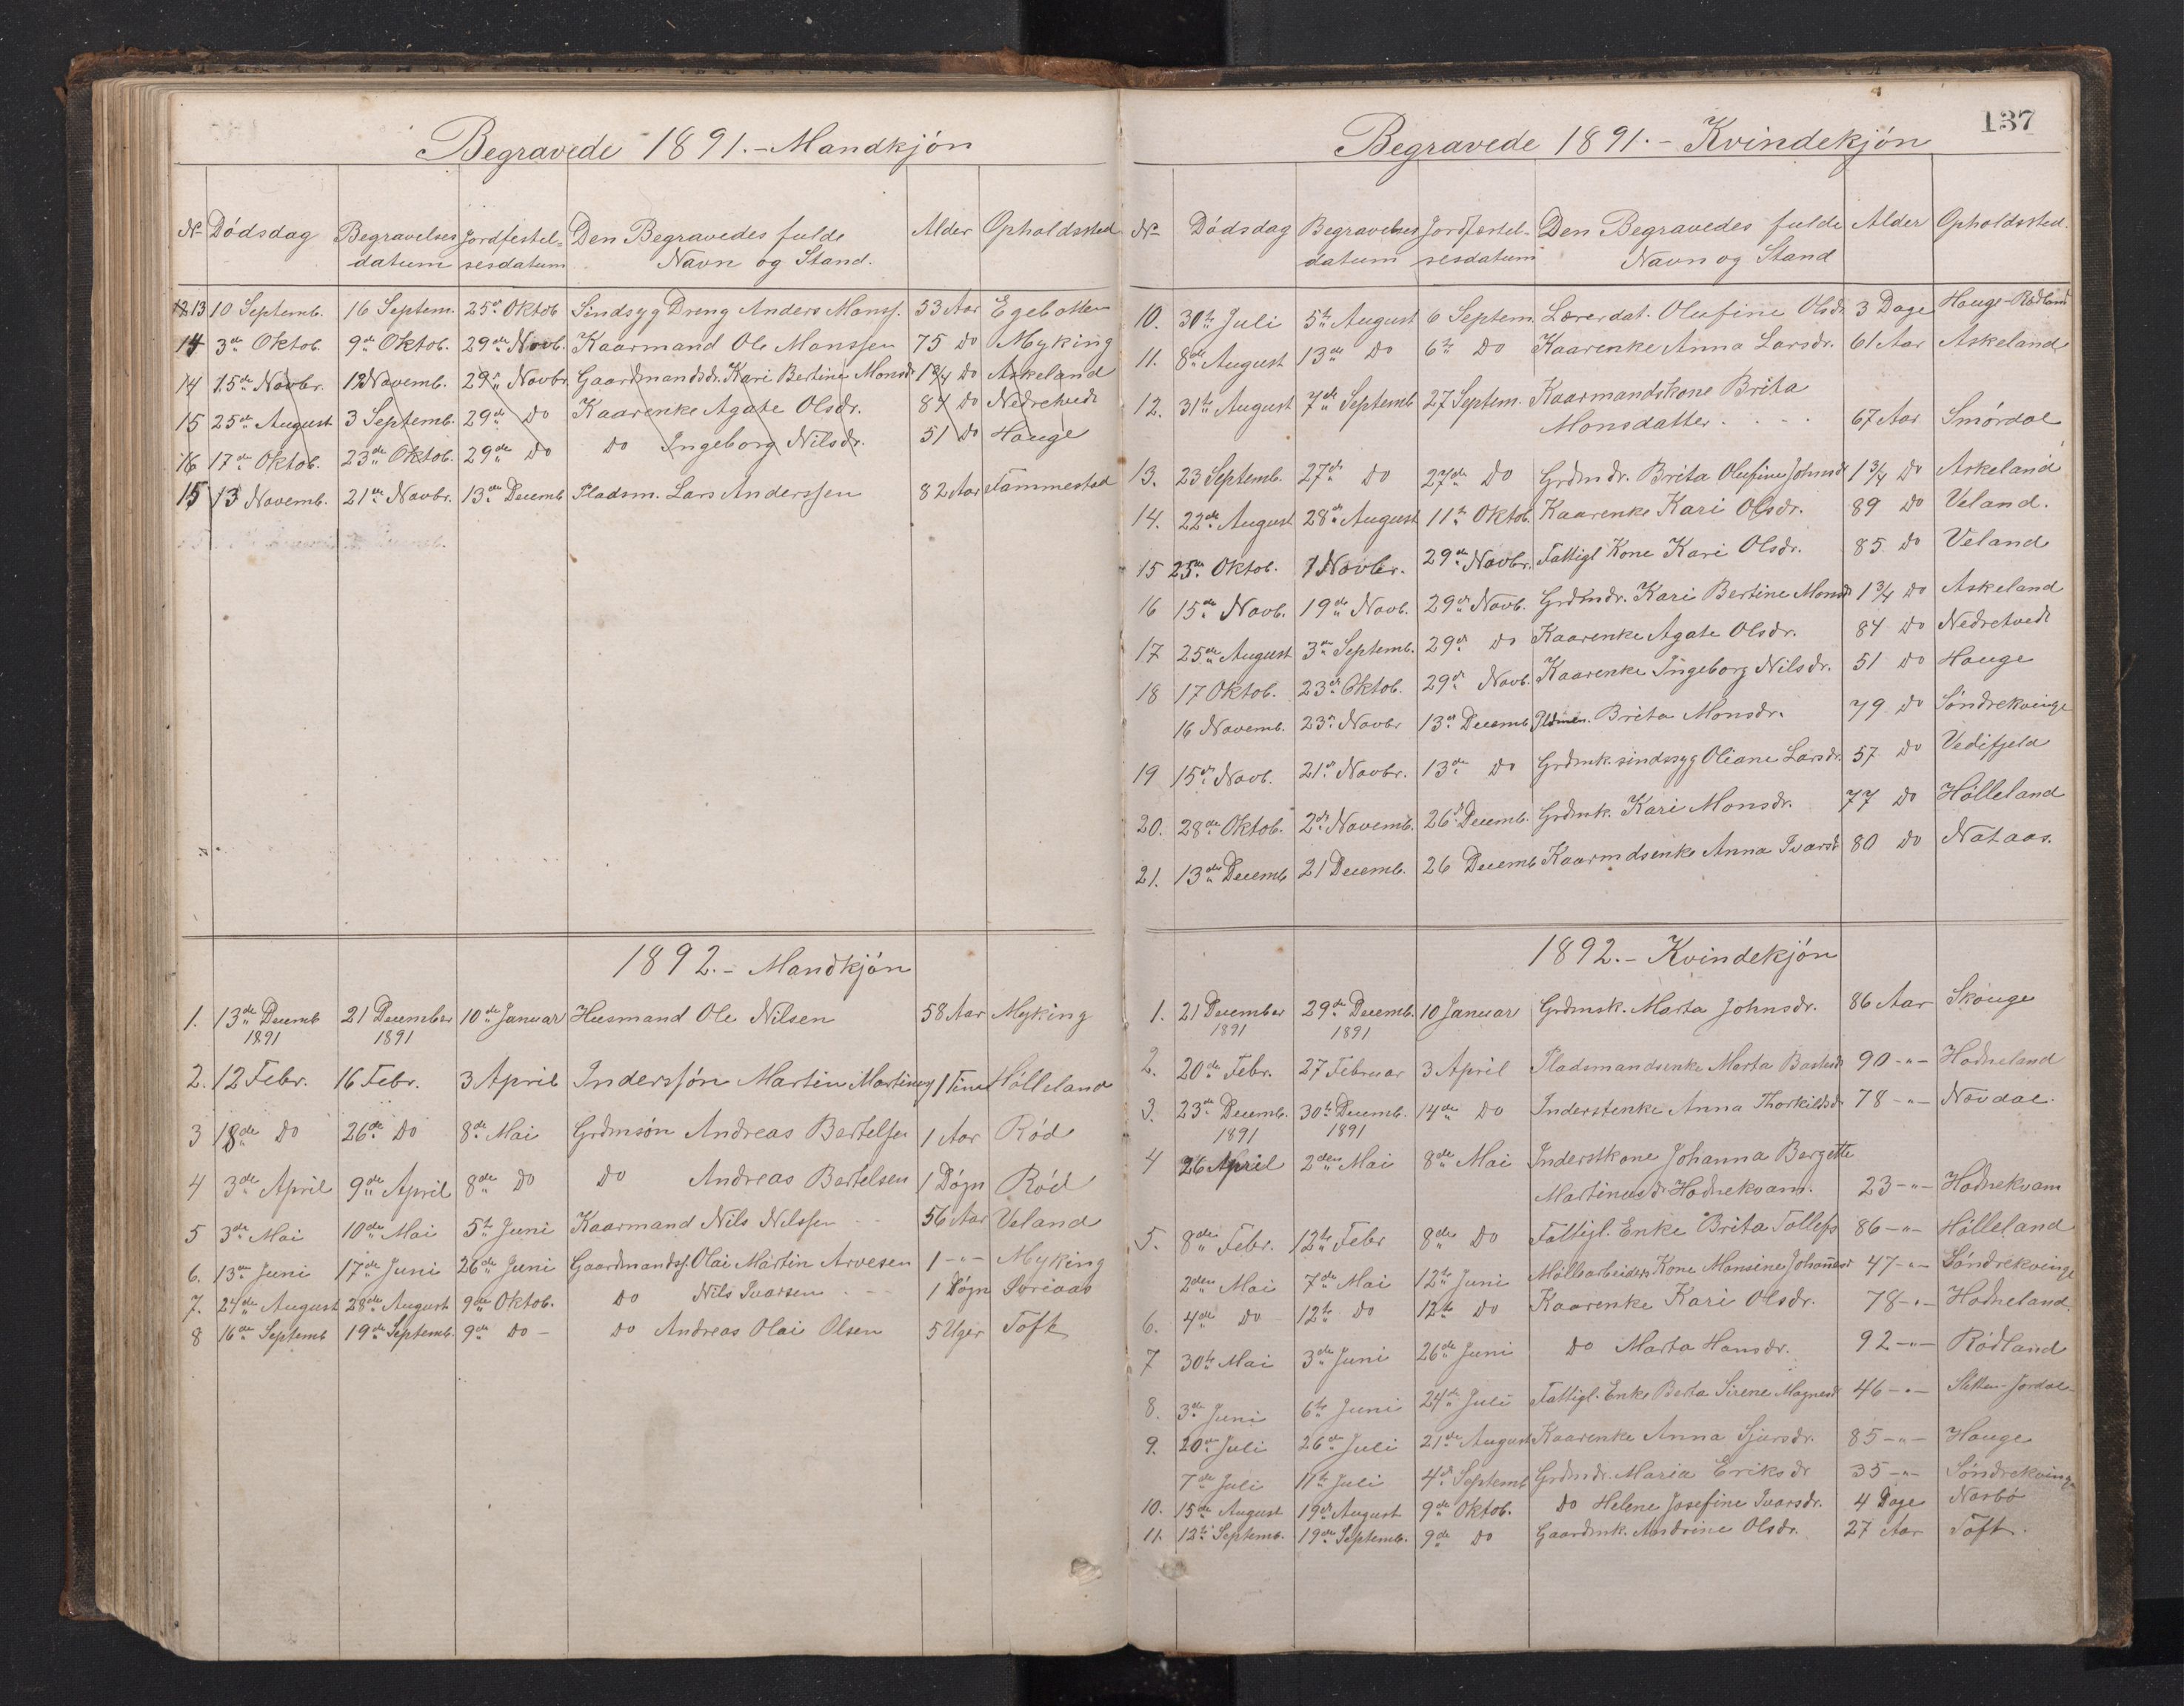 Begravede 1891. - Mandkjön
No Dödsdag Begravelses Jordfestel- Den Begravedes fulde Alder Opholdssted
datum sesdatum Navn og Stand.
13 10 Septemb. 16 Septem. 25de Oktob Sindsyg Dreng Anders Monss. 53 Aar Egebotten
14 3de Oktob. 9de Oktob. 29de Novb. Kaarmand Ole Monssen 75 do Myking
14 15de Novbr. 19 Novemb. 29de Novbr. Gaardmandsdr. Kari Bertine Monsdr 1 3/4 do Askeland
15 25de August 3 Septemb. 29de do Kaarenke Agate Olsdr. 84 do Nedretvedt
16 17de Oktob. 23de Oktob. 29de do do Ingeborg Nilsdr. 51 do Hauge
15 13 Novemb. 21de Novbr. 13de Decemb Pladsm. Lars Anderssen 82 Aar Tammestad
1892. - Mandkjön
1. 13de Decemb 21 December 10de Januar Husmand Ole Nilsen 58 Aar Myking
1891 1891
2. 12 Febr. 16 Febr. 3 April Inderssön Martin Martines 1 Time Hölleland
3 18de do 26de do 8de Mai Grdmsön Andreas Bertelsen 1 Aar Röd
4 3de April 9de April 8de do do Andreas Bertelsen 1 Dögn Röd
5 3de Mai 10de Mai 5te Juni Kaarmand Nils Nilssen 56 Aar Veland
6. 13de Juni 17de Juni 26de Juni Gaardmandss. Olai Martin Arvesen 1 -"- Myking
7. 24de August 28de August 9de Oktob. do Nils Ivarsen 1 Dögn
8 16de Septemb 19de Septemb. 9de do - do Andreas Olai Olsen 5 Uger Toft
137
Begravede 1891. - Kvindekjön
No Dödsdag Begravelses Jordfæstel- Den Begravedes fulde Alder Opholdssted.
datum sesdatum Navn og Stand
10. 30te Juli 5te August 6 Septem. Lærerdat. Olufine Olsdr. 3 Dage Hauge-Rødland
11. 8de August 13de do 6te do Kaarenke Anna Larsdr. 61 Aar Askeland
12. 31te August 7de Septemb 27 Septem. Kaarmandskone Brita
Monsdatter . . . . 67 Aar Smördal
13. 23 Septemb. 27de do 27de do Grdmdr. Brita Olufine Johnsdr 1 3/4 do Askeland
14. 22de August 28de August 11te Oktob. Kaarenke Kari Olsdr. 89 do Veland.
15 25de Oktob. 1 Novbr. 29de Novbr. Fattigl Kone Kari Olsdr. 85 do Veland
16 15de Novb. 19de Novb. 29de Novb. Grdmdr. Kari Bertine Monsdr 1 3/4 do Askeland
17 25de August 3de Septemb. 29de do Kaarenke Agate Olsdr. 84 do Nedretvedt
18 17 Oktob. 23de Oktob. 29de Novb. Kaarenke Ingeborg Nilsdr. 51 do Hauge
16 Novemb. 23de Novbr 13de Decemb Brita Monsdr. 79 do Söndrekvinge
19 15de Novb. 21de Novbr. 13de do Grdmk. sindssyg Oliane Larsdr. 57 do Vedifjeld
20. 28de Oktob. 2de Novemb. 26de Decemb. Grdmk. Kari Monsdr. 77 do Hölleland
21. 13de Decemb 21 Decemb. 26 Decemb Kaarmdsenke Anna Ivarsdr 80 do Nataas.
1892. - Kvindekjön
1. 21 December 29de Decemb. 10 Januar Grdmsk. Marta Johnsdr. 86 Aar Skouge
1891 1891
2. 20de Febr. 27 Februar 3 April Pladsmandsenke Marta 90 -"- Hodneland
3. 23de Decemb. 30te Decemb. 14de do Inderstenke Anna Thorkildsdr 78 -"- Növdal.
1891 1891
4 26 April 2den Mai 8de Mai Inderstkone Johanna Bergitte
Martinusdr Hodnekvam. 23 -"- Hodnekvam
5. 8de Febr. 12te Febr 8de do Fattigl. Enke Brita Tollefs 86 -"- Hölleland
2den Mai 7de Mai 12te Juni Möllearbeiders Kone Monsine Johannesdr 47 -"- Söndrekvinge
6. 4de do 12te do 12te do Kaarenke Kari Olsdr. 78 -"- Hodneland.
7 30te Mai 3de Juni 26de Juni do Marta Hansdr. 92 -"- Rödland
8. 3de Juni 6te Juni 24de Juli Fattigl. Enke Berta Sirene Magnesdr 46 -"- Sletten-Jordal
9. 20de Juli 26de Juli 21de August Kaarenke Anna Sjursdr. 85 -"- Hauge
7de Juli 11te Juli 4de Septemb Grdmdr. Maria Eriksdr 35 -"- Söndrekvinge
10. 15de August 19de August 9de Oktob. do Helene Josefine Ivarsdr. 4 Dage Narbö
11. 12te Septemb. 19de Septemb. 9de do Gaardmk. Andrine Olsdr. 27 Aar Toft.